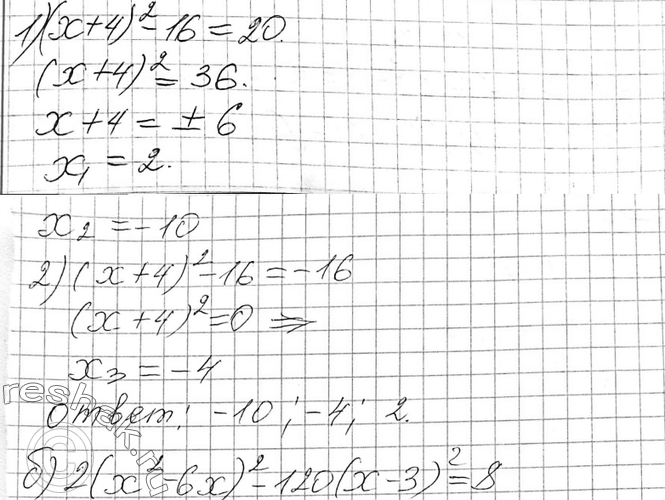 1) (x+4)²-16=20.
(x+4)²=36.
x+4=±6
x₁=2.
x₂=-10
2) (x+4)²-16=-16
(x+4)²=0 ⇒
x₃=-4
ответ: -10; -4; 2.
б) 2(x²-6x)²-120(x-3)²=8
reshak.ru